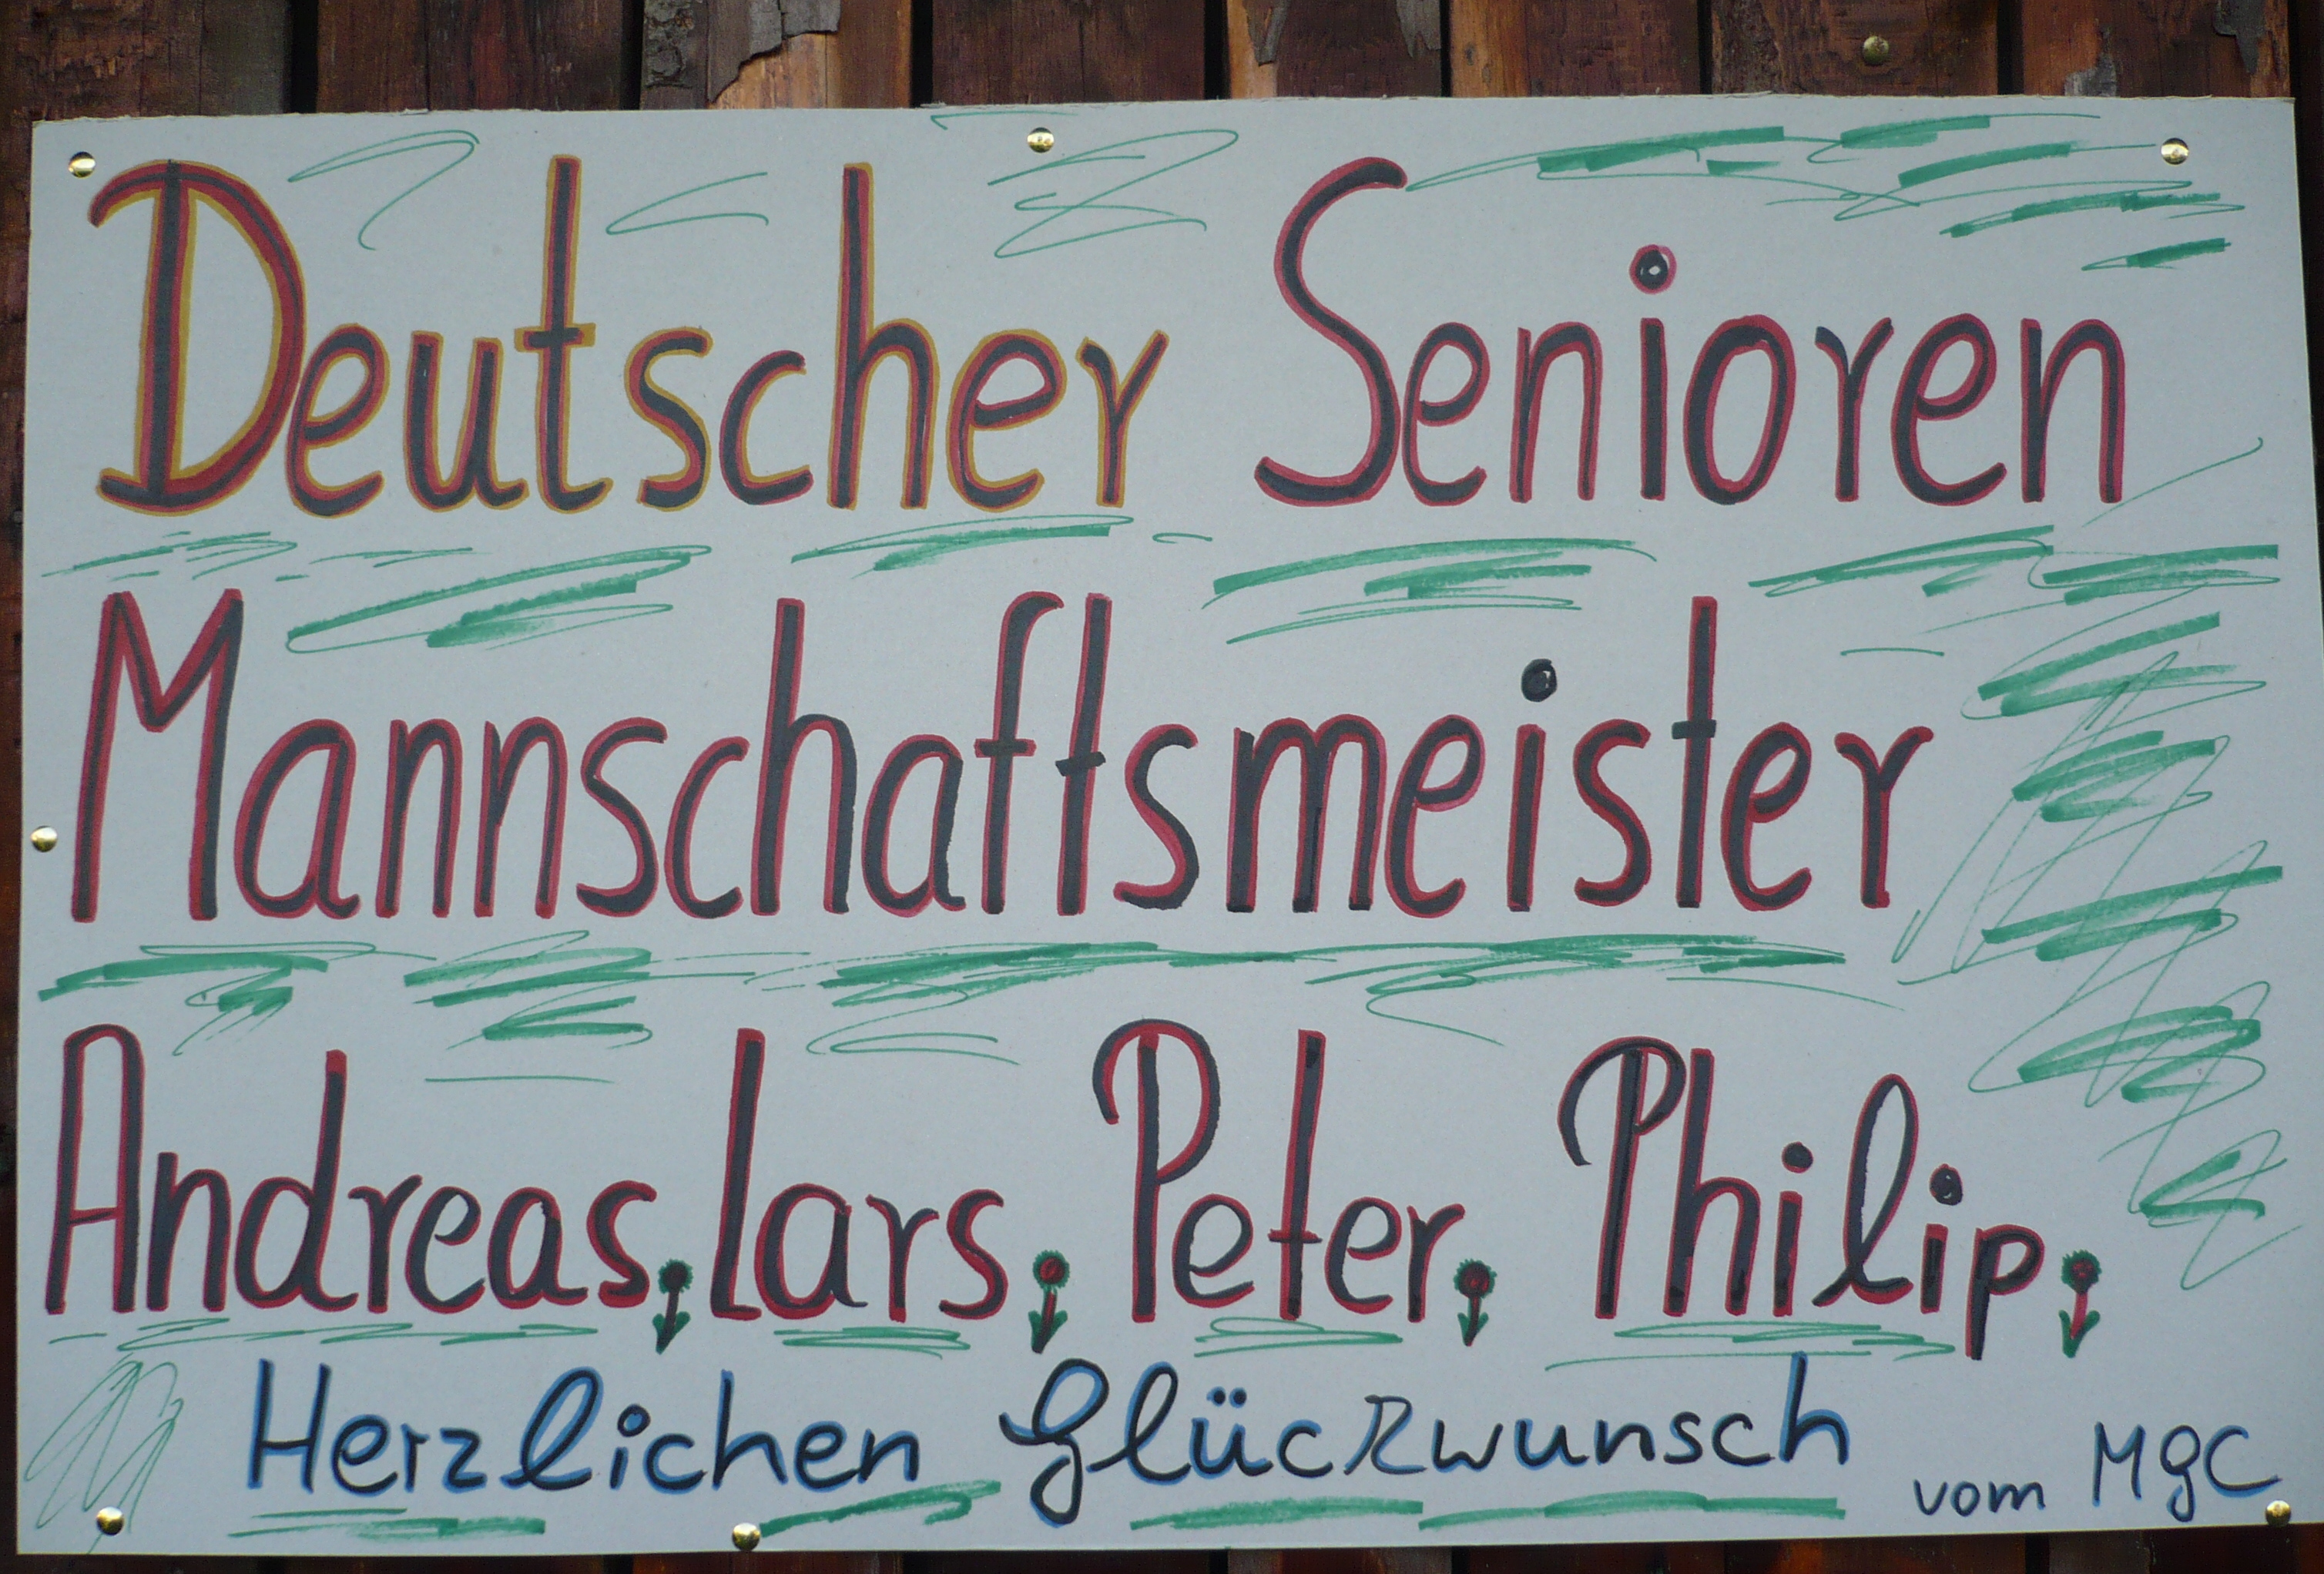 Deutscher Senioren
Mannschaftsmeister
Andreas, Lars, Peter, Philip,
Herzlichen Glückwunsch vom MGC